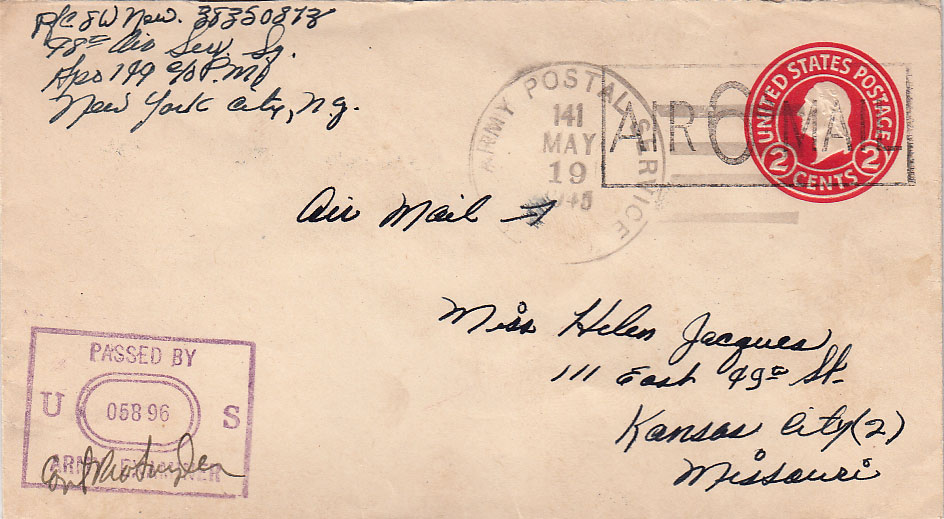 Pfc J W New. 38350873
98th Air Serv. Sq.
Apo 149 c/o P.M.
New York City, N.Y.
ARMY POSTAL SERVICE
141
MAY
19
1945
AIR 6¢ MAIL
UNITED STATES POSTAGE
2 CENTS 2
Air Mail
Miss Helen Jacques
111 East 49th St.
Kansas City (2)
Missouri
PASSED BY
U 05896 S
ARMY EXAMINER